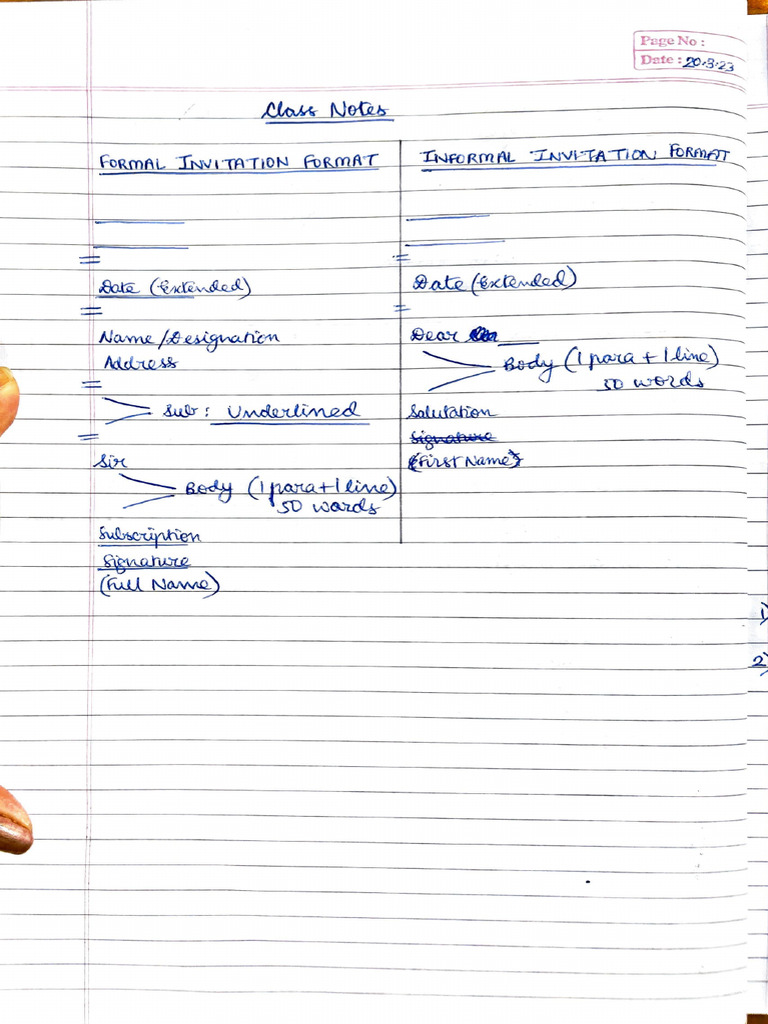 Page No :
Date : 20.3.23
Class Notes
FORMAL INVITATION FORMAT
Date (Extended)
Name/Designation
Address
Sub : Underlined
Sir
Body (1 para + 1 line)
50 words
Subscription
Signature
(Full Name)
INFORMAL INVITATION FORMAT
Date (Extended)
Dear
Body (1 para + 1 line)
50 words
Salutation
Signature
(First Name)
1)
2)